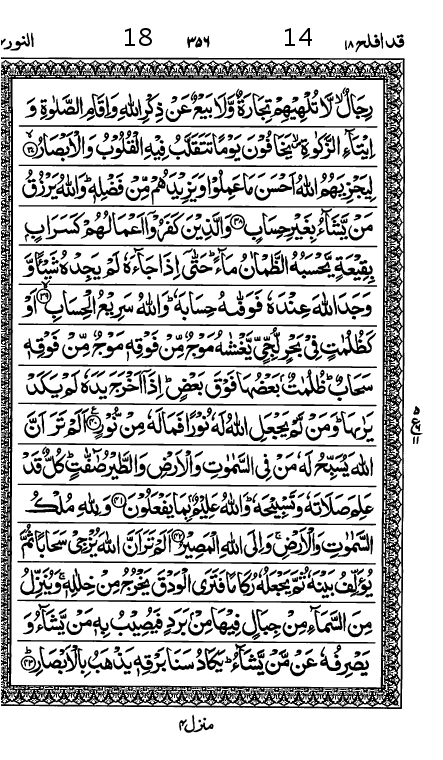 قد افلح ۱۸ 14 ۳۵۶ 18 النور
رِجَالٌ ۙ لَّا تُلْهِيْهِمْ تِجَارَةٌ وَّلَا بَيْعٌ عَنْ ذِكْرِ اللّٰهِ وَاِقَامِ الصَّلٰوةِ وَ
اِيْتَآءِ الزَّكٰوةِ ۙ يَخَافُوْنَ يَوْمًا تَتَقَلَّبُ فِيْهِ الْقُلُوْبُ وَالْاَبْصَارُ ۙ۝۳۷
لِيَجْزِيَهُمُ اللّٰهُ اَحْسَنَ مَا عَمِلُوْا وَيَزِيْدَهُمْ مِّنْ فَضْلِهٖ ؕ وَاللّٰهُ يَرْزُقُ
مَنْ يَّشَآءُ بِغَيْرِ حِسَابٍ ۝۳۸ وَالَّذِيْنَ كَفَرُوْۤا اَعْمَالُهُمْ كَسَرَابٍۭ
بِقِيْعَةٍ يَّحْسَبُهُ الظَّمْاٰنُ مَآءً ؕ حَتّٰۤى اِذَا جَآءَهٗ لَمْ يَجِدْهُ شَيْئًا وَّ
وَجَدَ اللّٰهَ عِنْدَهٗ فَوَفّٰىهُ حِسَابَهٗ ؕ وَاللّٰهُ سَرِيْعُ الْحِسَابِ ۙ۝۳۹ اَوْ
كَظُلُمٰتٍ فِيْ بَحْرٍ لُّجِّيٍّ يَّغْشٰىهُ مَوْجٌ مِّنْ فَوْقِهٖ مَوْجٌ مِّنْ فَوْقِهٖ
سَحَابٌ ؕ ظُلُمٰتٌۢ بَعْضُهَا فَوْقَ بَعْضٍ ؕ اِذَاۤ اَخْرَجَ يَدَهٗ لَمْ يَكَدْ
يَرٰىهَا ؕ وَمَنْ لَّمْ يَجْعَلِ اللّٰهُ لَهٗ نُوْرًا فَمَا لَهٗ مِنْ نُّوْرٍ ۝۴۰ اَلَمْ تَرَ اَنَّ
اللّٰهَ يُسَبِّحُ لَهٗ مَنْ فِي السَّمٰوٰتِ وَالْاَرْضِ وَالطَّيْرُ صٰٓفّٰتٍ ؕ كُلٌّ قَدْ
عَلِمَ صَلَاتَهٗ وَتَسْبِيْحَهٗ ؕ وَاللّٰهُ عَلِيْمٌۢ بِمَا يَفْعَلُوْنَ ۝۴۱ وَلِلّٰهِ مُلْكُ
السَّمٰوٰتِ وَالْاَرْضِ ۚ وَاِلَى اللّٰهِ الْمَصِيْرُ ۝۴۲ اَلَمْ تَرَ اَنَّ اللّٰهَ يُزْجِيْ سَحَابًا ثُمَّ
يُؤَلِّفُ بَيْنَهٗ ثُمَّ يَجْعَلُهٗ رُكَامًا فَتَرَى الْوَدْقَ يَخْرُجُ مِنْ خِلٰلِهٖ ۚ وَيُنَزِّلُ
مِنَ السَّمَآءِ مِنْ جِبَالٍ فِيْهَا مِنْۢ بَرَدٍ فَيُصِيْبُ بِهٖ مَنْ يَّشَآءُ وَ
يَصْرِفُهٗ عَنْ مَّنْ يَّشَآءُ ؕ يَكَادُ سَنَا بَرْقِهٖ يَذْهَبُ بِالْاَبْصَارِ ؕ۝۴۳
منزل ۴